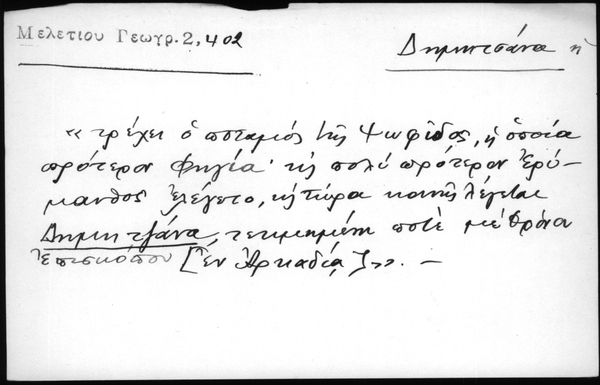 Μελετίου Γεωγρ. 2, 402
Δημητσάνα ἡ
«τρέχει ὁ ποταμὸς τῆς Ψωφῖδος, ἡ ὁποία
πρότερον Φηγέα· κὴ πολὺ πρότερον Ἐρύ-
μανθος ἐλέγετο, κὴ τώρα κοινῆ λέγεται
Δημητζάνα, τετιμημένη ποτὲ μὲ θρόνον
Ἐπισκόπου [Ἐν Ἀρκαδίᾳ]». –